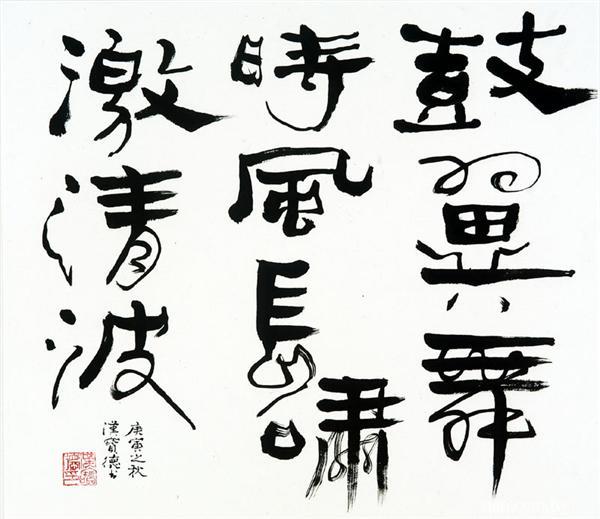 鼓翼舞
時風長嘯
激清波
庚寅之秋
漢寶德書